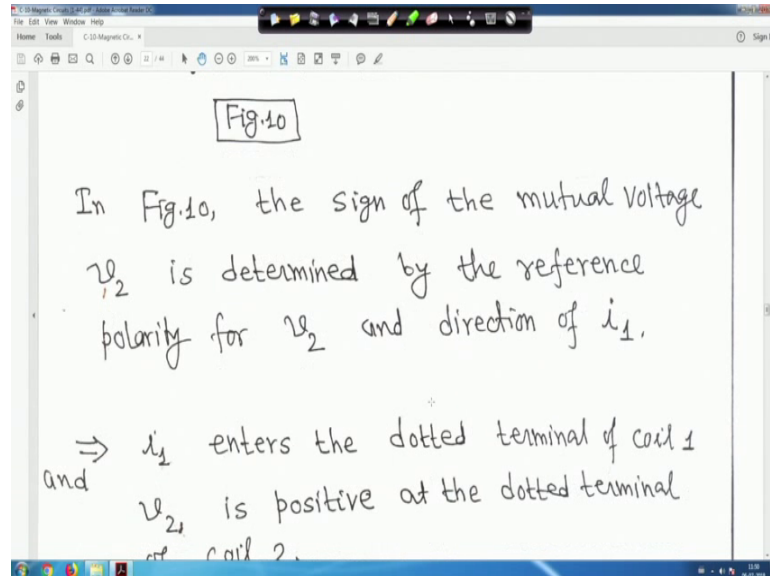 C-10-Magnetic Circuits (1-44).pdf - Adobe Acrobat Reader DC
File Edit View Window Help
Home Tools C-10-Magnetic Cir... × Sign
22 / 44 200%
Fig.10
In Fig.10, the sign of the mutual voltage
v₂ is determined by the reference
polarity for v₂ and direction of i₁.
⇒ i₁ enters the dotted terminal of coil 1
and
v₂, is positive at the dotted terminal
of coil 2.
11:50